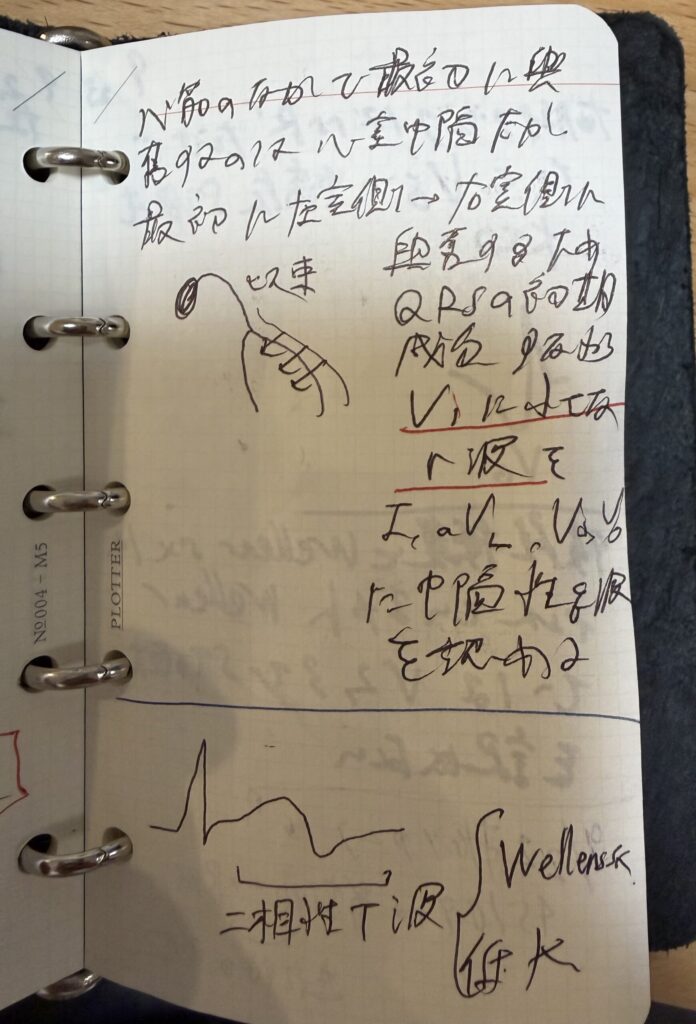 心筋のなかで最初に興
奮するのは心室中隔だが
最初に左室側→右室側に
興奮するため
QRSの初期
成分すなわち
V1に小さな
r波を
I, aVL, V5, V6
に中隔性q波
を認める
ヒス束
二相性T波
Wellens sx
低K
No.004 - M5
PLOTTER